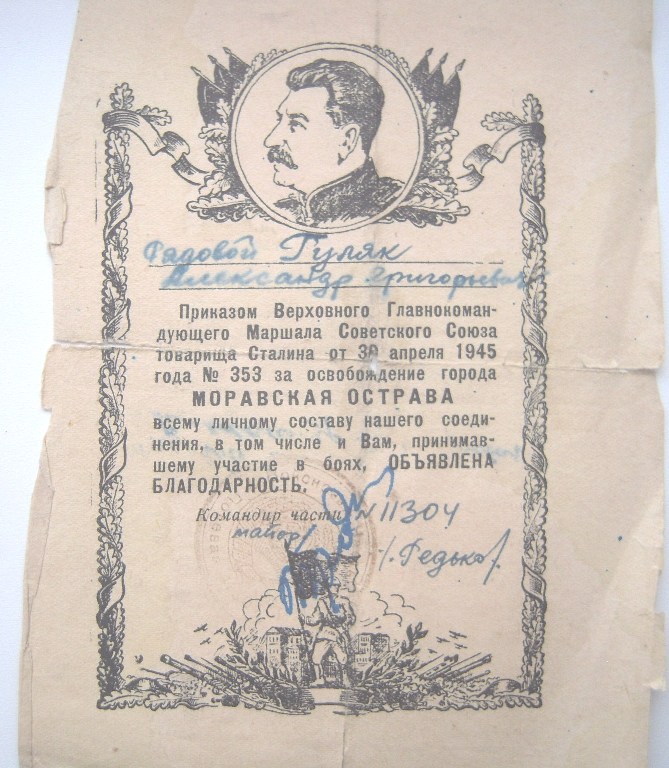 Рядовой Гуляк
Александр Григорьевич
Приказом Верховного Главнокоман-
дующего Маршала Советского Союза
товарища Сталина от 30 апреля 1945
года № 353 за освобождение города
МОРАВСКАЯ ОСТРАВА
всему личному составу нашего соеди-
нения, в том числе и Вам, принимав-
шему участие в боях, ОБЪЯВЛЕНА
БЛАГОДАРНОСТЬ.
Командир части №11304
майор /Федько/.